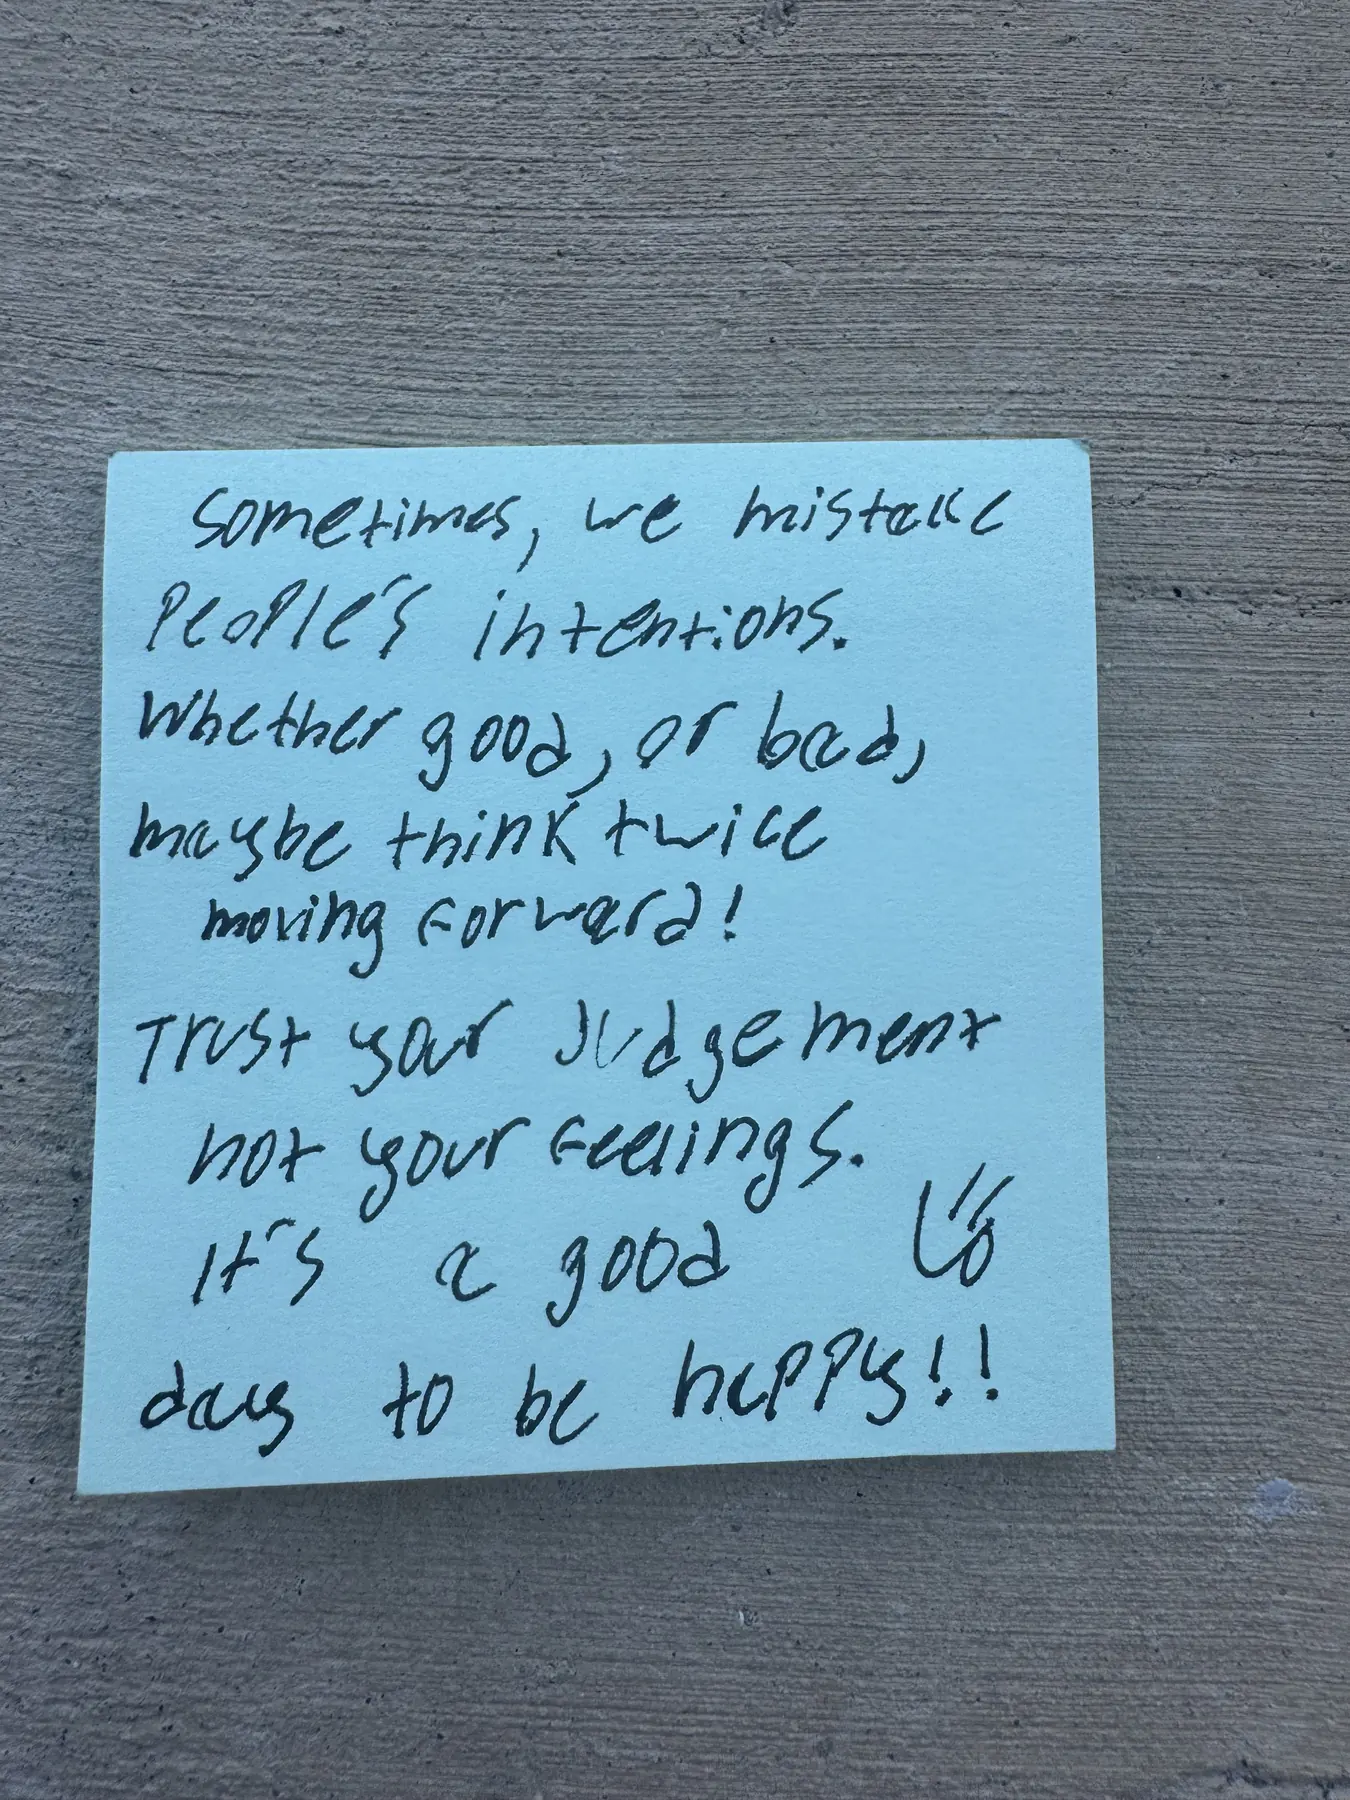 Sometimes, we mistake
People's intentions.
Whether good, or bad,
maybe think twice
moving forward!
Trust your Judgement
not your feelings.
It's a good
day to be happy!!